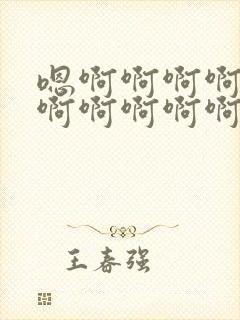 嗯啊啊啊啊
啊啊啊啊啊
王春强